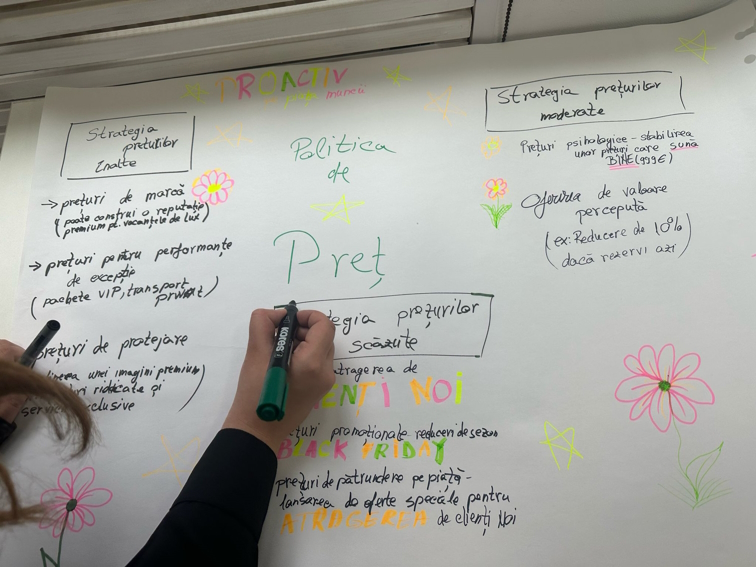 PROACTIV
muncii
Politica
de
Preț
Strategia
prețurilor
Înalte
→ prețuri de marcă
(poate construi o reputație
premium pt. vacanțele de lux)
→ prețuri pentru performanțe
de excepție
(pachete VIP, transport
privat)
prețuri de protejare
unei imagini premium
ridicate și
exclusive
Strategia prețurilor
moderate
Prețuri psihologice - stabilirea
unor prețuri care sună
BINE (999€)
Oferirea de valoare
percepută
(ex: Reducere de 10%
dacă rezervi azi)
tegia prețurilor
scăzute
atragerea de
ENȚI NOI
ețuri promoționale reduceri de sezon
BLACK FRIDAY
prețuri de pătrundere pe piață -
lansarea de oferte speciale pentru
ATRAGEREA de clienți Noi
kores